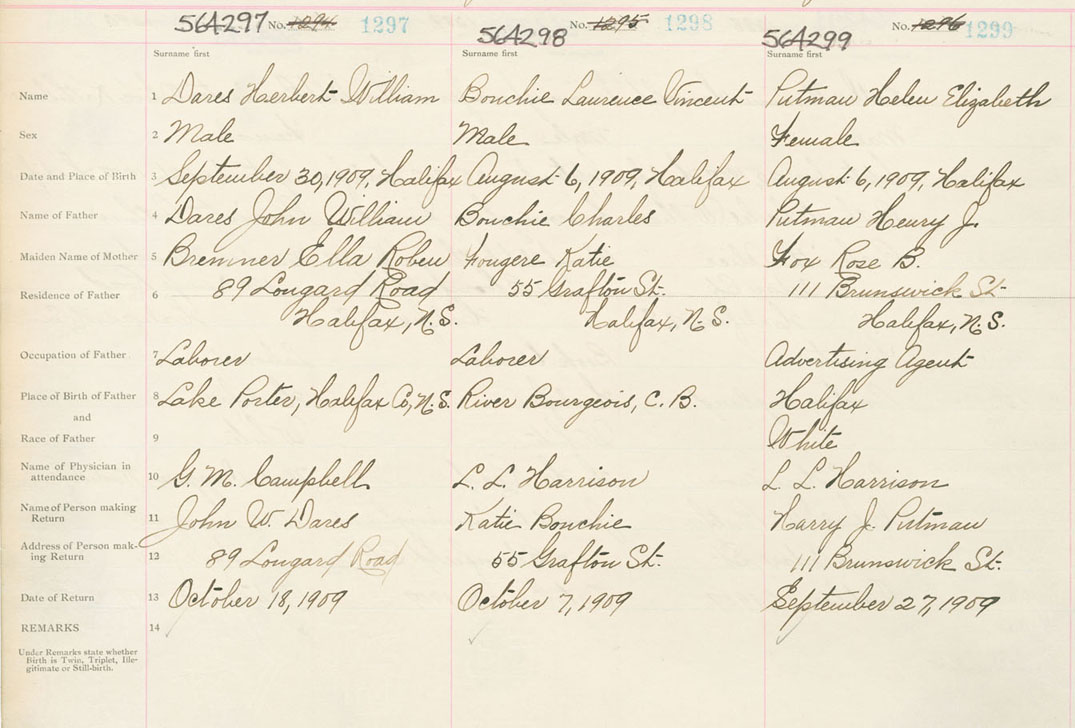 564297 No. 1294 1297 564298 No. 1295 1298 564299 No. 1296 1299
Surname first Surname first Surname first
Name 1 Dares Herbert William Bouchie Laurence Vincent Putman Helen Elizabeth
Sex 2 Male Male Female
Date and Place of Birth 3 September 30, 1909, Halifax August 6, 1909, Halifax August 6, 1909, Halifax
Name of Father 4 Dares John William Bouchie Charles Putman Henry J.
Maiden Name of Mother 5 Bremner Ella Roben Fougere Katie Fox Rose B.
Residence of Father 6 89 Longard Road 55 Grafton St. 111 Brunswick St
Halifax, N.S. Halifax, N.S. Halifax, N.S.
Occupation of Father 7 Laborer Laborer Advertising Agent
Place of Birth of Father 8 Lake Porter, Halifax Co, N.S. River Bourgeois, C.B. Halifax
and
Race of Father 9 White
Name of Physician in
attendance 10 G. M. Campbell L. L. Harrison L. L. Harrison
Name of Person making
Return 11 John W. Dares Katie Bouchie Harry J. Putman
Address of Person mak-
ing Return 12 89 Longard Road 55 Grafton St. 111 Brunswick St.
Date of Return 13 October 18, 1909 October 7, 1909 September 27, 1909
REMARKS 14
Under Remarks state whether
Birth is Twin, Triplet, Ille-
gitimate or Still-birth.